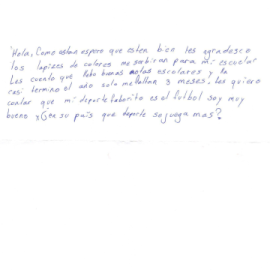 Hola, Como estan espero que esten bien les agradesco
los lapizes de colores me serbiran para mi escuela
Les cuento que llebo buenas notas escolares y ya
casi termino el año solo me faltan 3 meses. Les quiero
contar que mi deporte faborito es el futbol soy muy
bueno y ¿en su pais que deporte se juega mas?